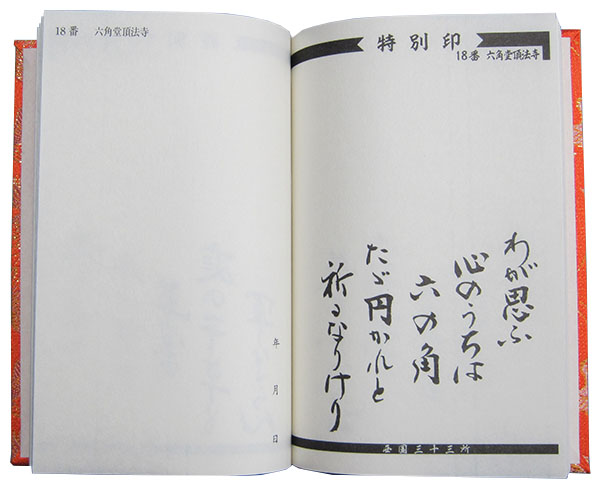 18番 六角堂頂法寺
年 月 日
特別印
18番 六角堂頂法寺
わが思ふ
心のうちは
六の角
たゞ円かれと
祈るなりけり
西国三十三所